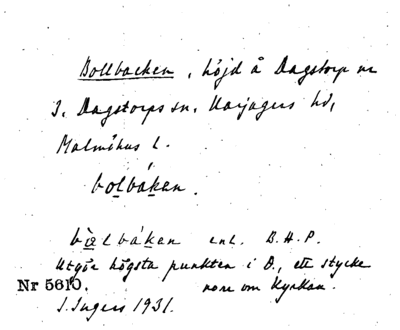 Bollbacken, höjd å Dagstorp nr
3, Dagstorps sn, Harjagers hd,
Malmöhus l.
bolbákan.
bòlbákan enl. B.H.P.
Utgör högsta punkten i D., ett stycke
Nr 5610. norr om kyrkan.
I. Ingers 1931.